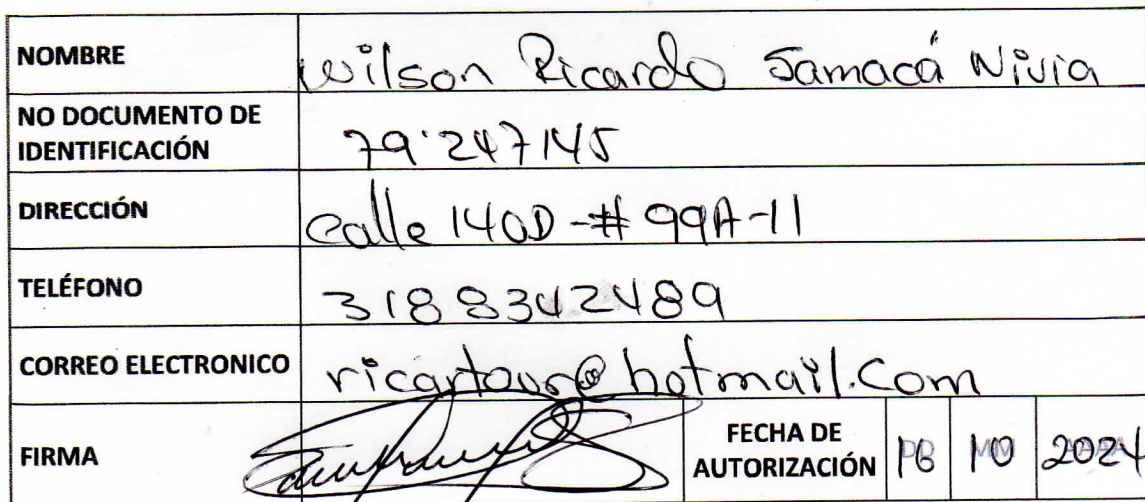 NOMBRE Wilson Ricardo Samacá Nivia
NO DOCUMENTO DE
IDENTIFICACIÓN 79'247145
DIRECCIÓN Calle 140D-# 99A-11
TELÉFONO 3188342489
CORREO ELECTRONICO ricartour@hotmail.com
FIRMA
FECHA DE
AUTORIZACIÓN 16 10 2024